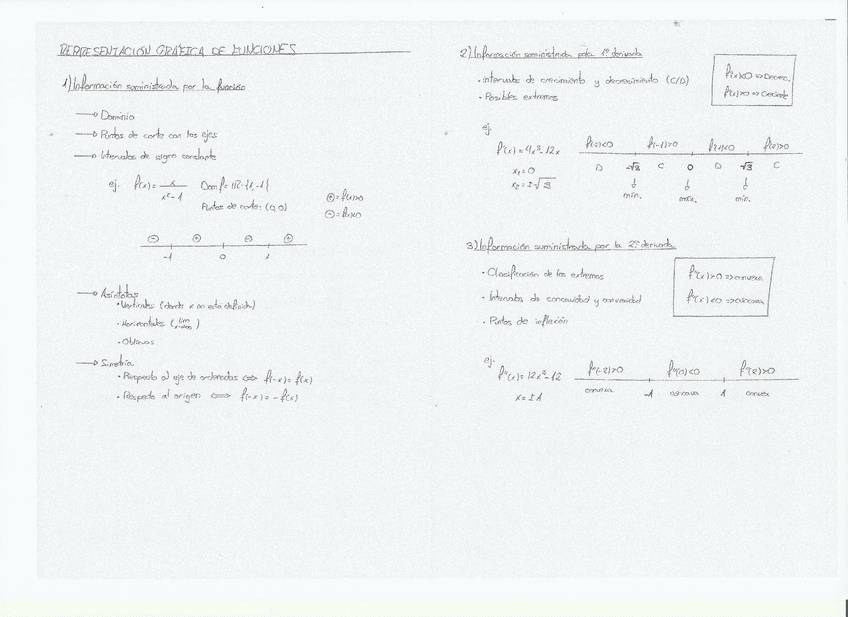 REPRESENTACIÓN GRÁFICA DE FUNCIONES
1) Información suministrada por la función
→ Dominio
→ Puntos de corte con los ejes
→ Intervalos de signo constante
ej. f(x) = x / x² - 1 Dom f = ℝ - {1, -1}
Puntos de corte: (0,0)
⊕ = f(x)>0
⊖ = f(x)<0
⊖ ⊕ ⊖ ⊕
-1 0 1
→ Asíntotas
• Verticales (donde x no está definida)
• Horizontales (lim x→∞)
• Oblicuas
→ Simetría
• Respecto al eje de ordenadas ⟺ f(-x) = f(x)
• Respecto al origen ⟺ f(-x) = -f(x)
2) Información suministrada por la 1ª derivada
• Intervalos de crecimiento y decrecimiento (C/D)
• Posibles extremos
f'(x)<0 ⇒ Decrec.
f'(x)>0 ⇒ Creciente
ej.
f'(x) = 4x³ - 12x
x₁ = 0
x₂ = ±√3
f'(-2)<0 f'(-1)>0 f'(1)<0 f'(2)>0
D -√3 C 0 D √3 C
mín. máx. mín.
3) Información suministrada por la 2ª derivada
• Clasificación de los extremos
• Intervalos de concavidad y convexidad
• Puntos de inflexión
f''(x)>0 ⇒ convexa
f''(x)<0 ⇒ cóncava
ej.
f''(x) = 12x² - 12
x = ±1
f''(-2)>0 f''(0)<0 f''(2)>0
convexa -1 cóncava 1 convex